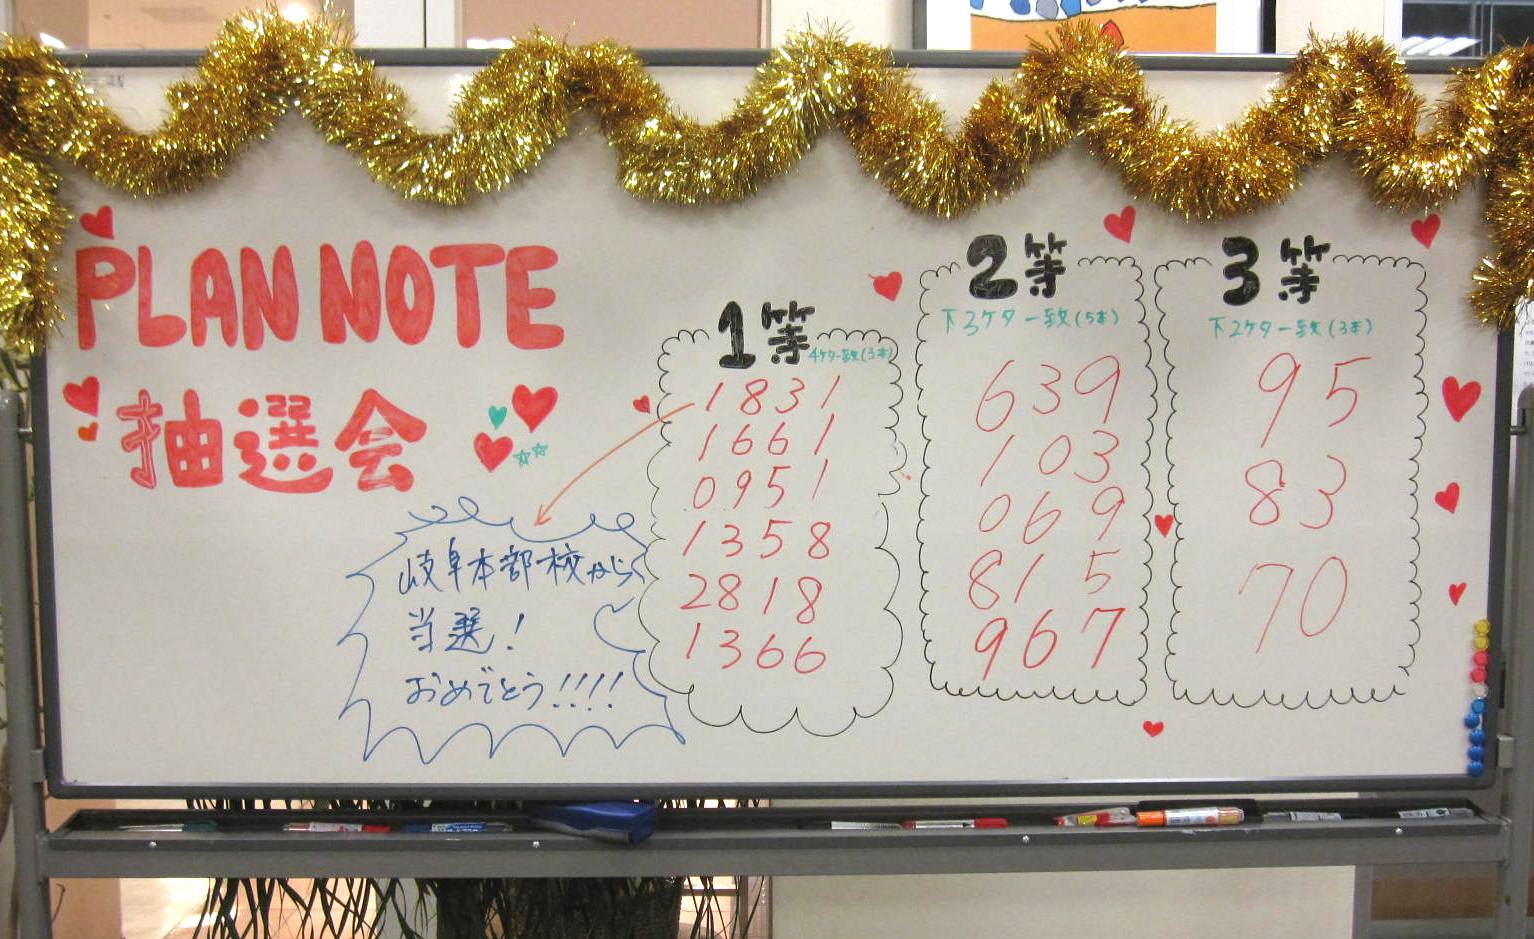 PLAN NOTE
抽選会
岐阜本部校から
当選!
おめでとう!!!!
1等
4ケタ一致(3本)
1831
1661
0951
1358
2818
1366
2等
下3ケタ一致(5本)
639
103
069
815
967
3等
下2ケタ一致(3本)
95
83
70